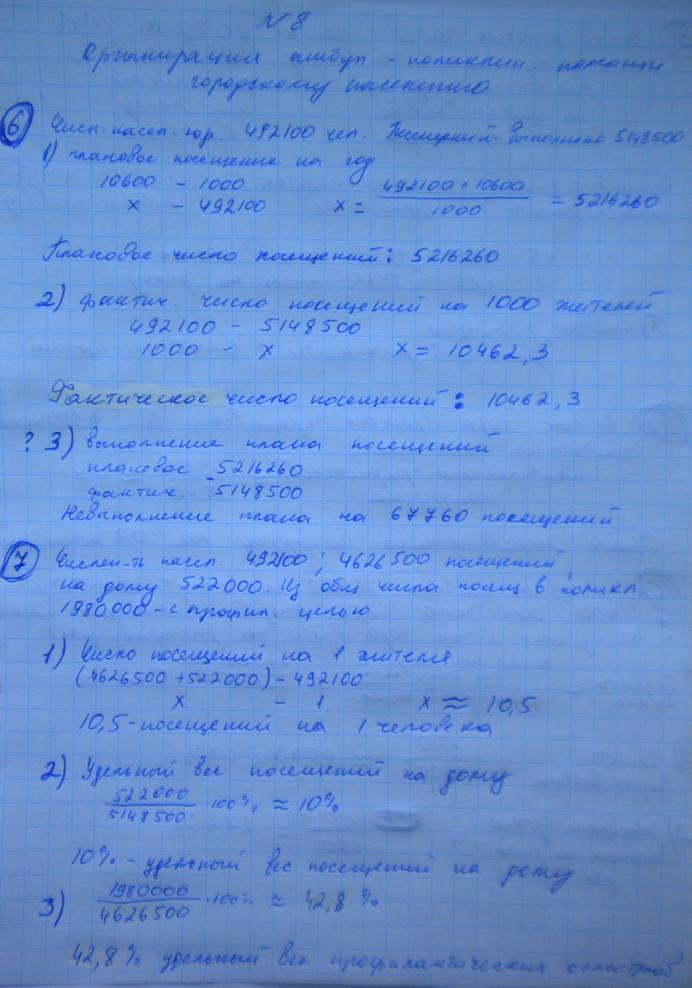 № 8
Организация амбул. - поликлин помощи
городскому населению
6 Числ. насел. гор. 492100 чел. Посещений выполнено 5148500
1) плановое посещение на год
10600 - 1000
x - 492100 x = 492100 · 10600 / 1000 = 5216260
Плановое число посещений: 5216260
2) фактич. число посещений на 1000 жителей
492100 - 5148500
1000 - x x = 10462,3
Фактическое число посещений: 10462,3
? 3) выполнение плана посещений
плановое - 5216260
фактич. 5148500
Невыполнение плана на 67760 посещений
7 Числен-ть насел. 492100; 4626500 посещений,
на дому 522000. Из общ. числа посещ. в поликл.
1980000 - с профил. целью
1) Число посещений на 1 жителя
(4626500 + 522000) - 492100
x - 1 x ≈ 10,5
10,5 - посещений на 1 человека
2) Удельный вес посещений на дому
522000 / 5148500 · 100% ≈ 10%
10% - удельный вес посещений на дому
3) 1980000 / 4626500 · 100% ≈ 42,8 %
42,8 % удельный вес профилактических осмотров